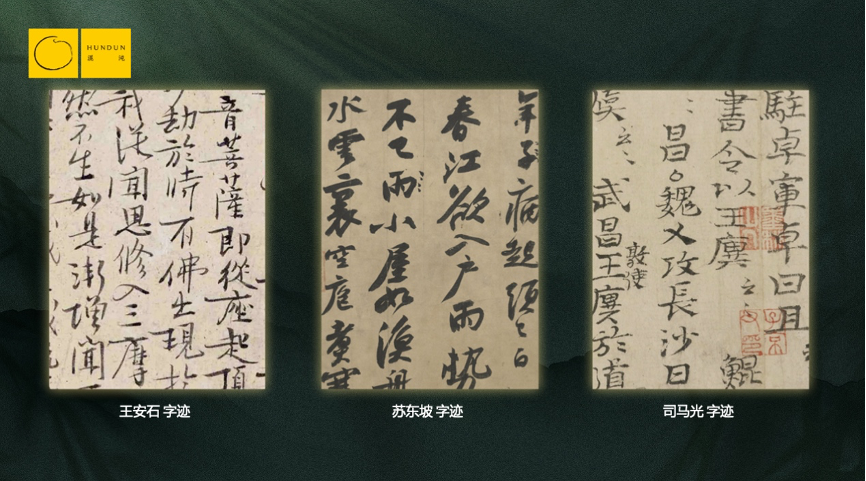 HUNDUN
混沌
音菩薩即從座起頂
劫於時有佛出現於
我從聞思修入三摩
然不生如是漸增聞
年子病起頭已白
春江欲入户雨勢
不已雨小屋如漁舟
水雲裏空庖煑寒
曰且
書令以王廙
昌魏乂攻長沙曰
武昌王廙於道
敦使
王安石 字迹
苏东坡 字迹
司马光 字迹